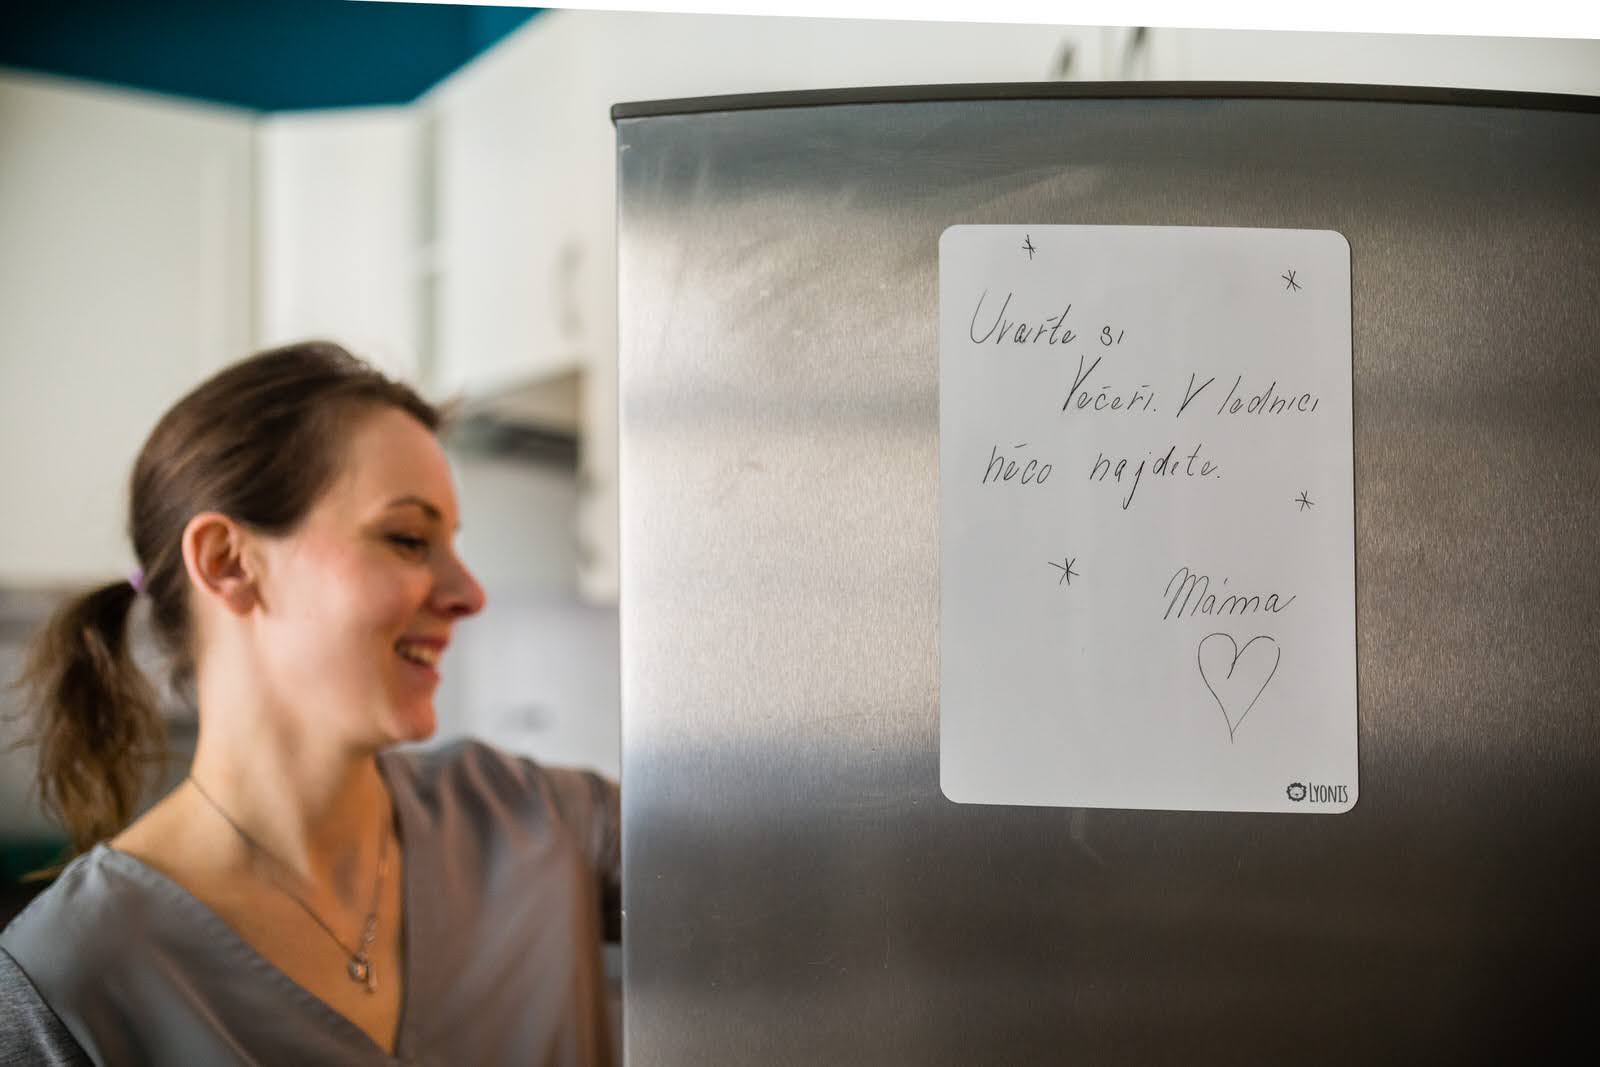 Uvařte si
Večeři. V lednici
něco najdete.
Máma
LYONIS